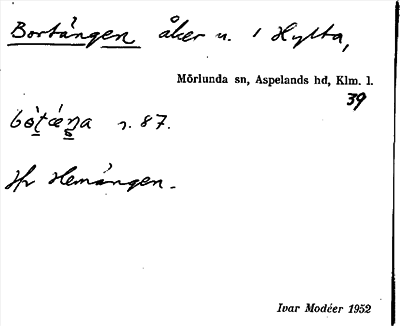 Bortängen åker n. 1 Hylta,
Mörlunda sn, Aspelands hd, Klm. l.
39
n. 87.
Hemängen.
Ivar Modéer 1952